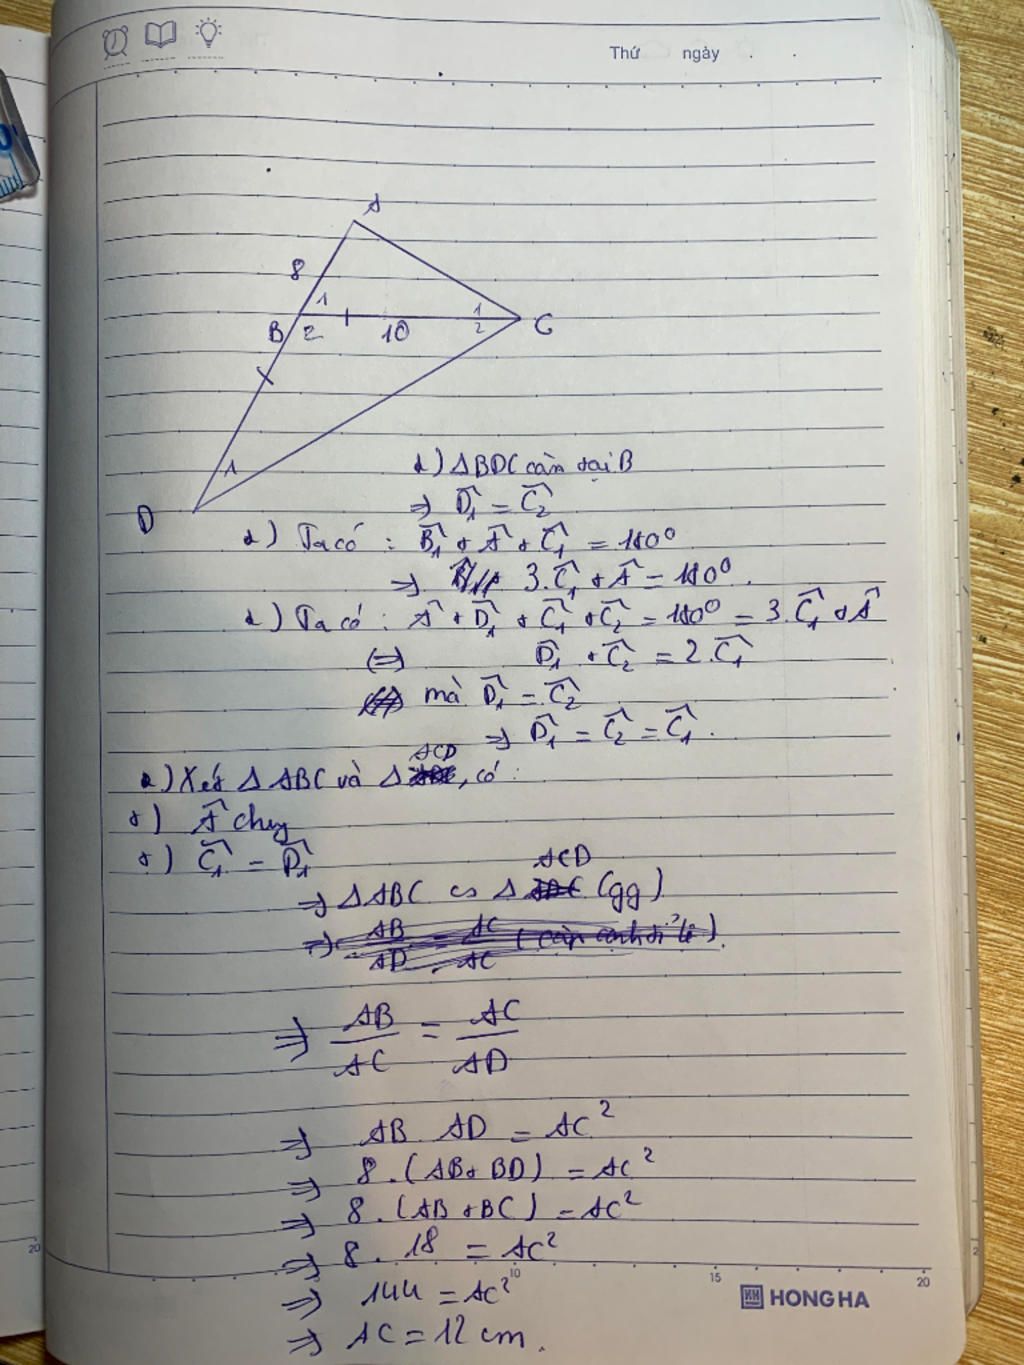 Thứ ngày . .
A
8
1
B 2 10 1 2 C
1
D
+) ΔBDC cân tại B
⇒ D̂₁ = Ĉ₂
+) Ta có : B̂₁ + Â + Ĉ₁ = 180°
⇒ 3.Ĉ₁ + Â = 180°.
+) Ta có : Â + D̂₁ + Ĉ₁ + Ĉ₂ = 180° = 3.Ĉ₁ + Â
(⇒) D̂₁ + Ĉ₂ = 2.Ĉ₁
mà D̂₁ = Ĉ₂
⇒ D̂₁ = Ĉ₂ = Ĉ₁.
+) Xét Δ ABC và Δ ACD, có :
+) Â chung
+) Ĉ₁ = D̂₁
⇒ ΔABC ∽ Δ ACD (gg)
⇒ AB/AC = AC/AD
⇒ AB AD = AC²
⇒ 8.(AB+BD) = AC²
⇒ 8.(AB+BC) = AC²
⇒ 8. 18 = AC²
⇒ 144 = AC²
⇒ AC = 12 cm.
20 10 15 20 2
HONG HA